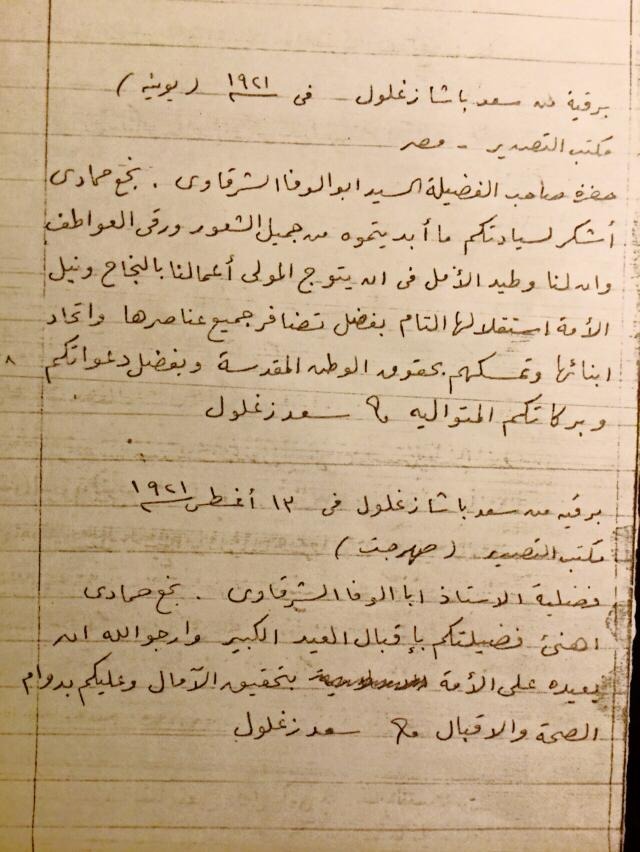 برقية من سعد باشا زغلول فى ١٩٢١ (يونيه)
مكتب التصدير - مصر
حضرة صاحب الفضيلة السيد ابوالوفا الشرقاوى . بنجع حمادى
أشكر لسيادتكم ما أبديتموه من جميل الشعور ورقى العواطف
وان لنا وطيد الأمل فى ان يتوج المولى أعمالنا بالنجاح ونيل
الأمة استقلالها التام بفضل تضافر جميع عناصرها واتحاد
ابنائها وتمسكهم بحقوق الوطن المقدسة وبفضل دعواتكم
٨
وبركاتكم المتواليه سعد زغلول
برقيه من سعد باشا زغلول فى ١٣ أغسطس ١٩٢١
مكتب التصدير (صهرجت)
فضيلة الاستاذ ابا الوفا الشرقاوى . بنجع حمادى
اهنئ فضيلتكم بإقبال العيد الكبير وارجو الله ان
يعيده على الأمة بتحقيق الآمال وعليكم بدوام
الصحة والاقبال سعد زغلول